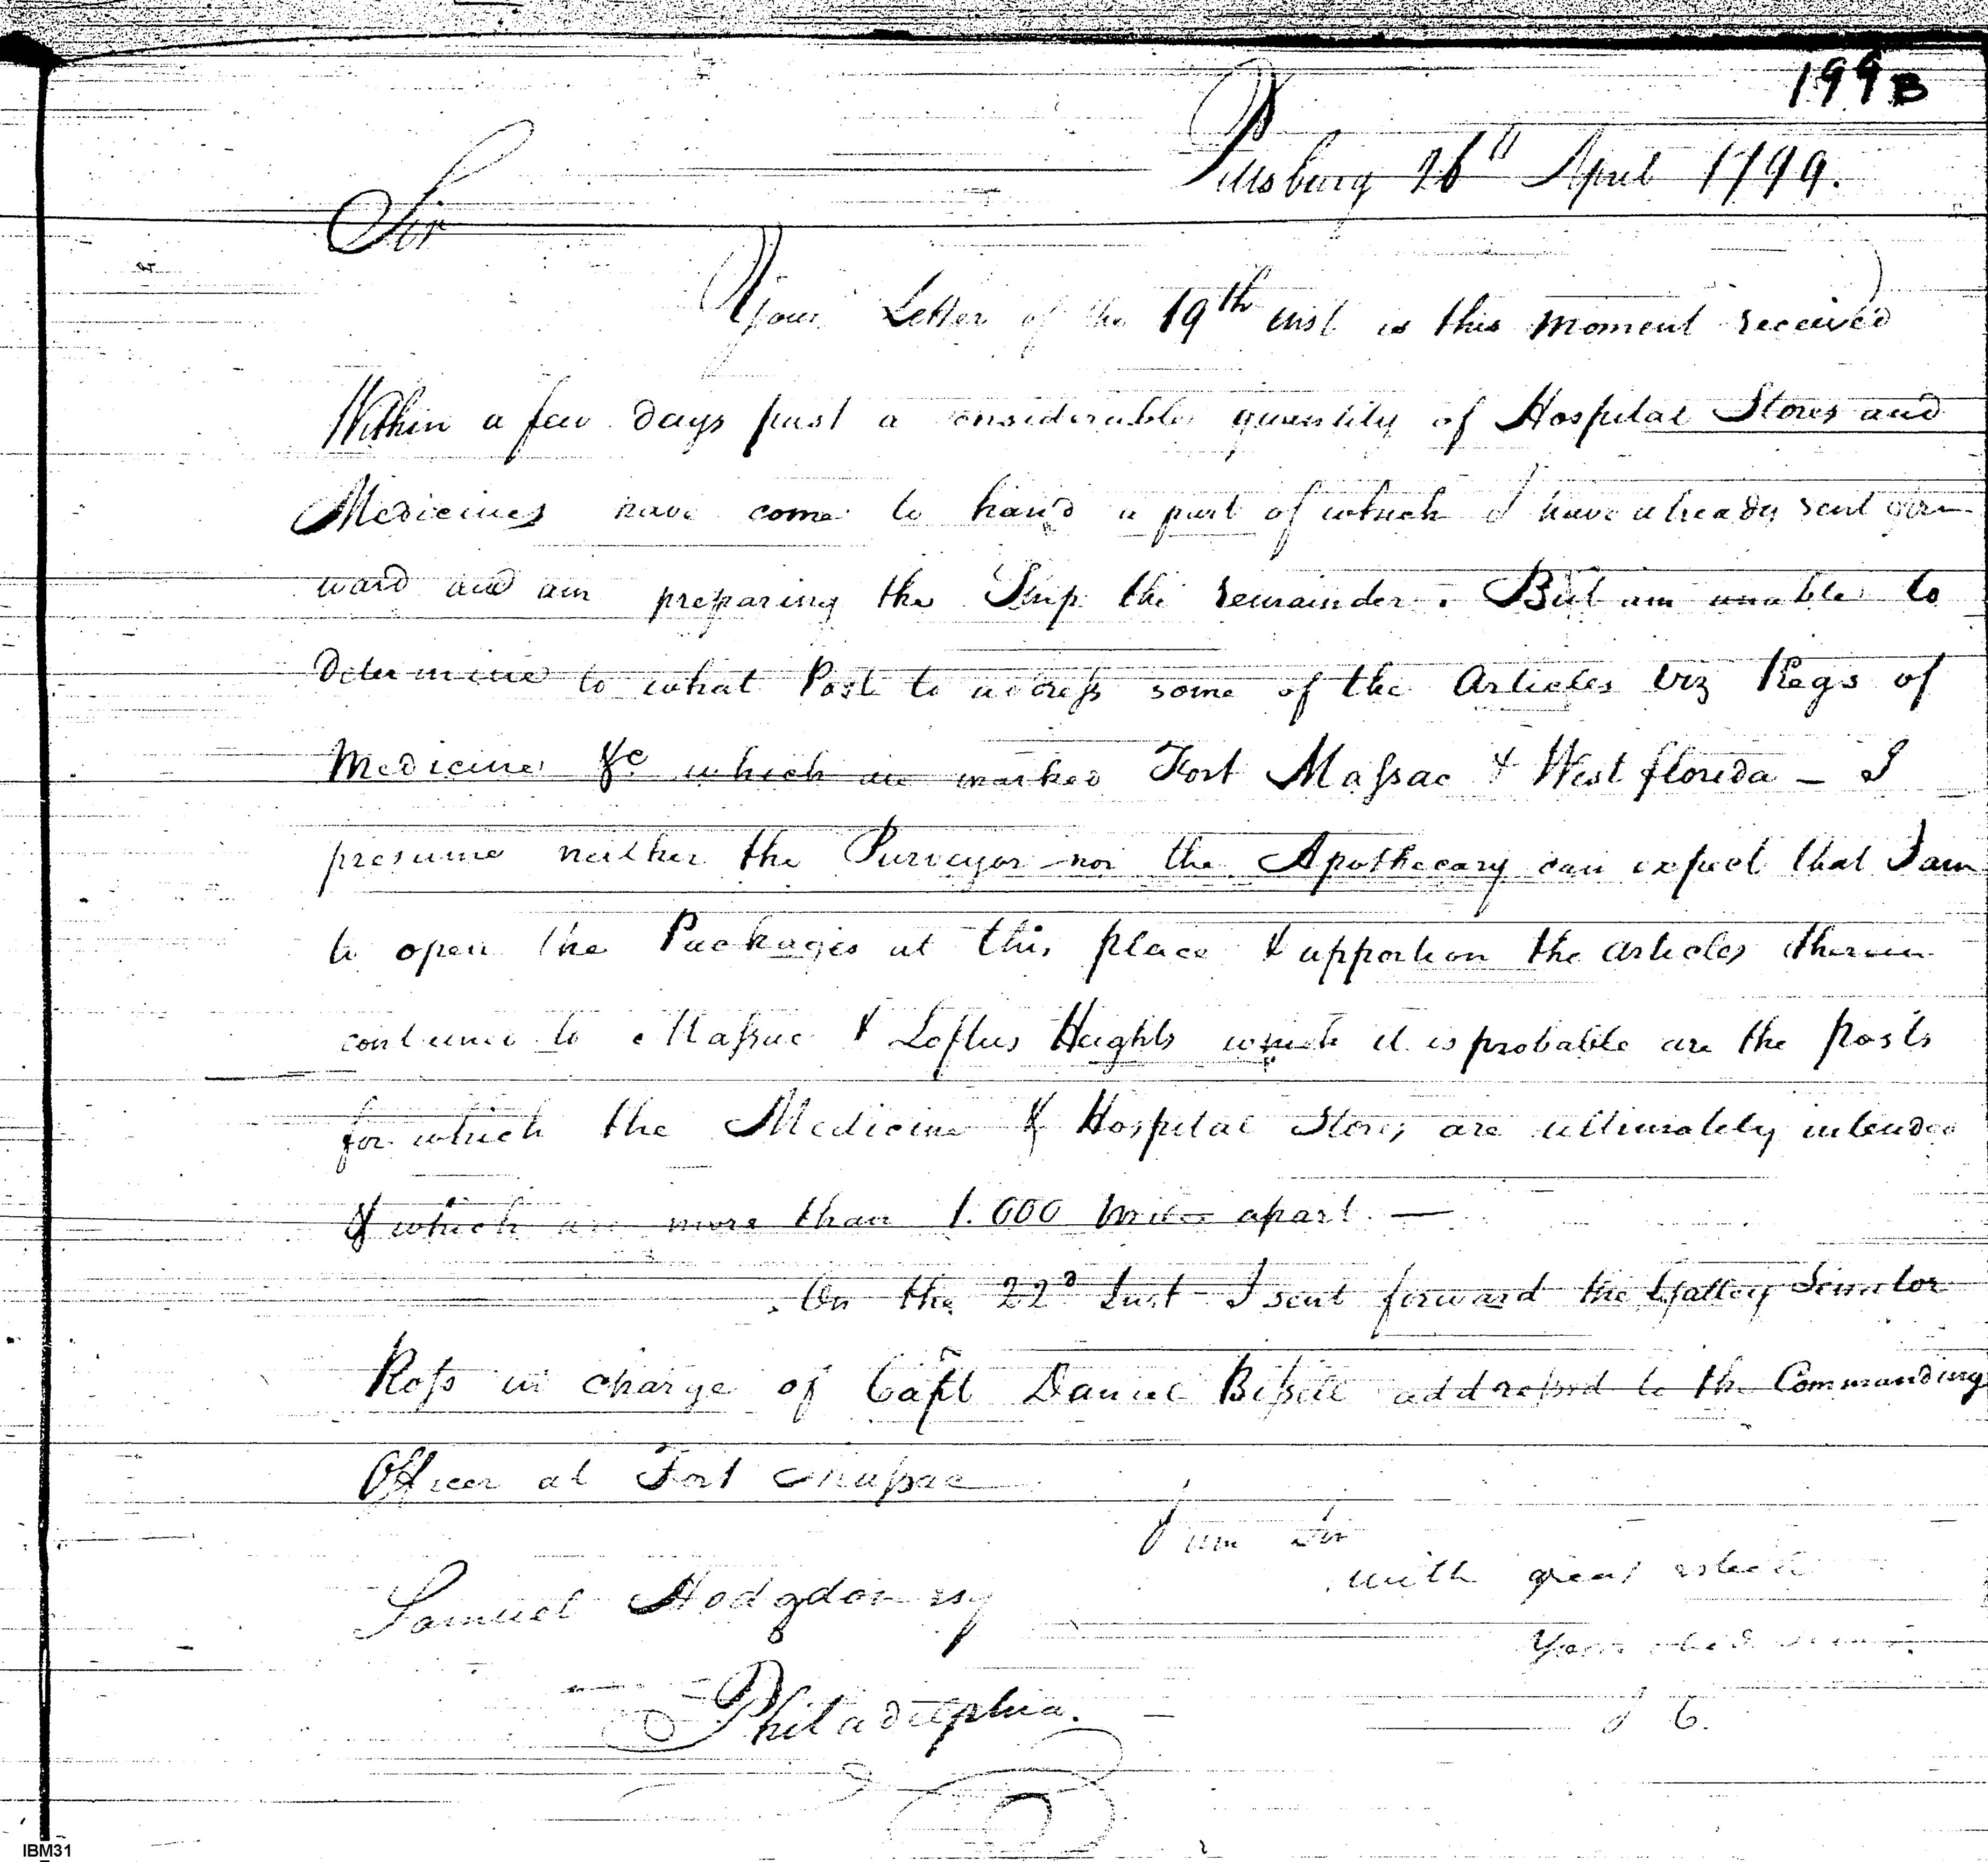 199B
Pittsburg 26th April 1799.
Sir
Your Letter of the 19th inst is this moment received
Within a few days past a considerable quantity of Hospital Stores and
Medicines have come to hand a part of which I have already sent for
ward and am preparing the Ship the remainder. But am unable to
determine to what Post to address some of the Articles viz Kegs of
Medicine &c which are marked Fort Massac & West florida — I
presume neither the Purveyor nor the Apothecary can expect that I am
to open the Packages at this place & apportion the articles therein
contained to Massac & Loftus Heights which it is probable are the posts
for which the Medicine & Hospital Stores are ultimately intended
& which are more than 1.000 Miles apart. —
On the 22d Inst I sent forward the Galley Senator
Ross in charge of Capt Daniel Bissell addressed to the Commanding
Officer at Fort Massac
I am Sir
with great esteem
Samuel Hodgdon esq
Your obed serv
Philadelphia.
J C.
IBM31